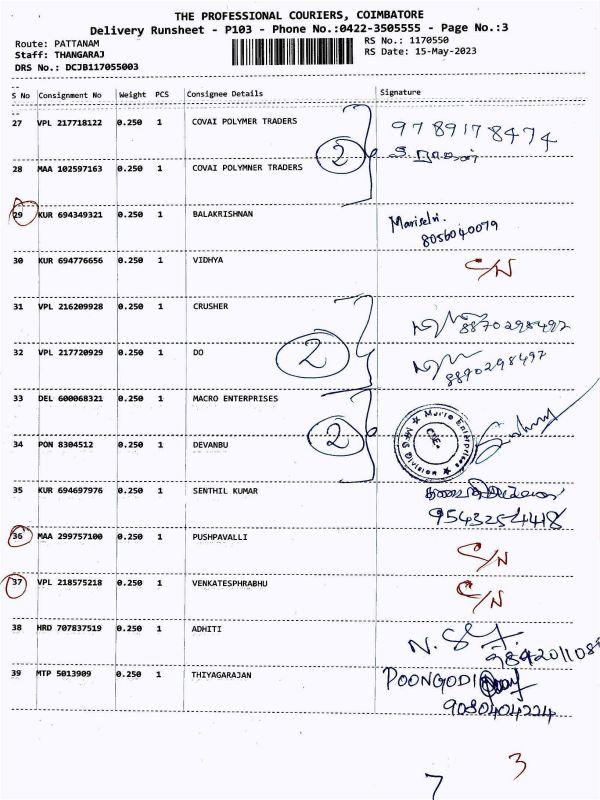 THE PROFESSIONAL COURIERS, COIMBATORE
Delivery Runsheet - P103 - Phone No.:0422-3505555 - Page No.:3
Route: PATTANAM
RS No.: 1170550
Staff: THANGARAJ
RS Date: 15-May-2023
DRS No.: DCJB117055003
S No Consignment No Weight PCS Consignee Details Signature
27 VPL 217718122 0.250 1 COVAI POLYMER TRADERS 9789178474
2
28 MAA 102597163 0.250 1 COVAI POLYMNER TRADERS
29 KUR 694349321 0.250 1 BALAKRISHNAN Mariselvi
8056040079
30 KUR 694776656 0.250 1 VIDHYA C/N
31 VPL 216209928 0.250 1 CRUSHER 8870298497
2
32 VPL 217720929 0.250 1 DO 8870298497
33 DEL 600068321 0.250 1 MACRO ENTERPRISES
2
34 PON 8304512 0.250 1 DEVANBU
35 KUR 694697976 0.250 1 SENTHIL KUMAR
9543254418
36 MAA 299757100 0.250 1 PUSHPAVALLI C/N
37 VPL 218575218 0.250 1 VENKATESPHRABHU C/N
38 HRD 707837519 0.250 1 ADHITI
39 MTP 5013909 0.250 1 THIYAGARAJAN POONGODI
9080404224
7 3